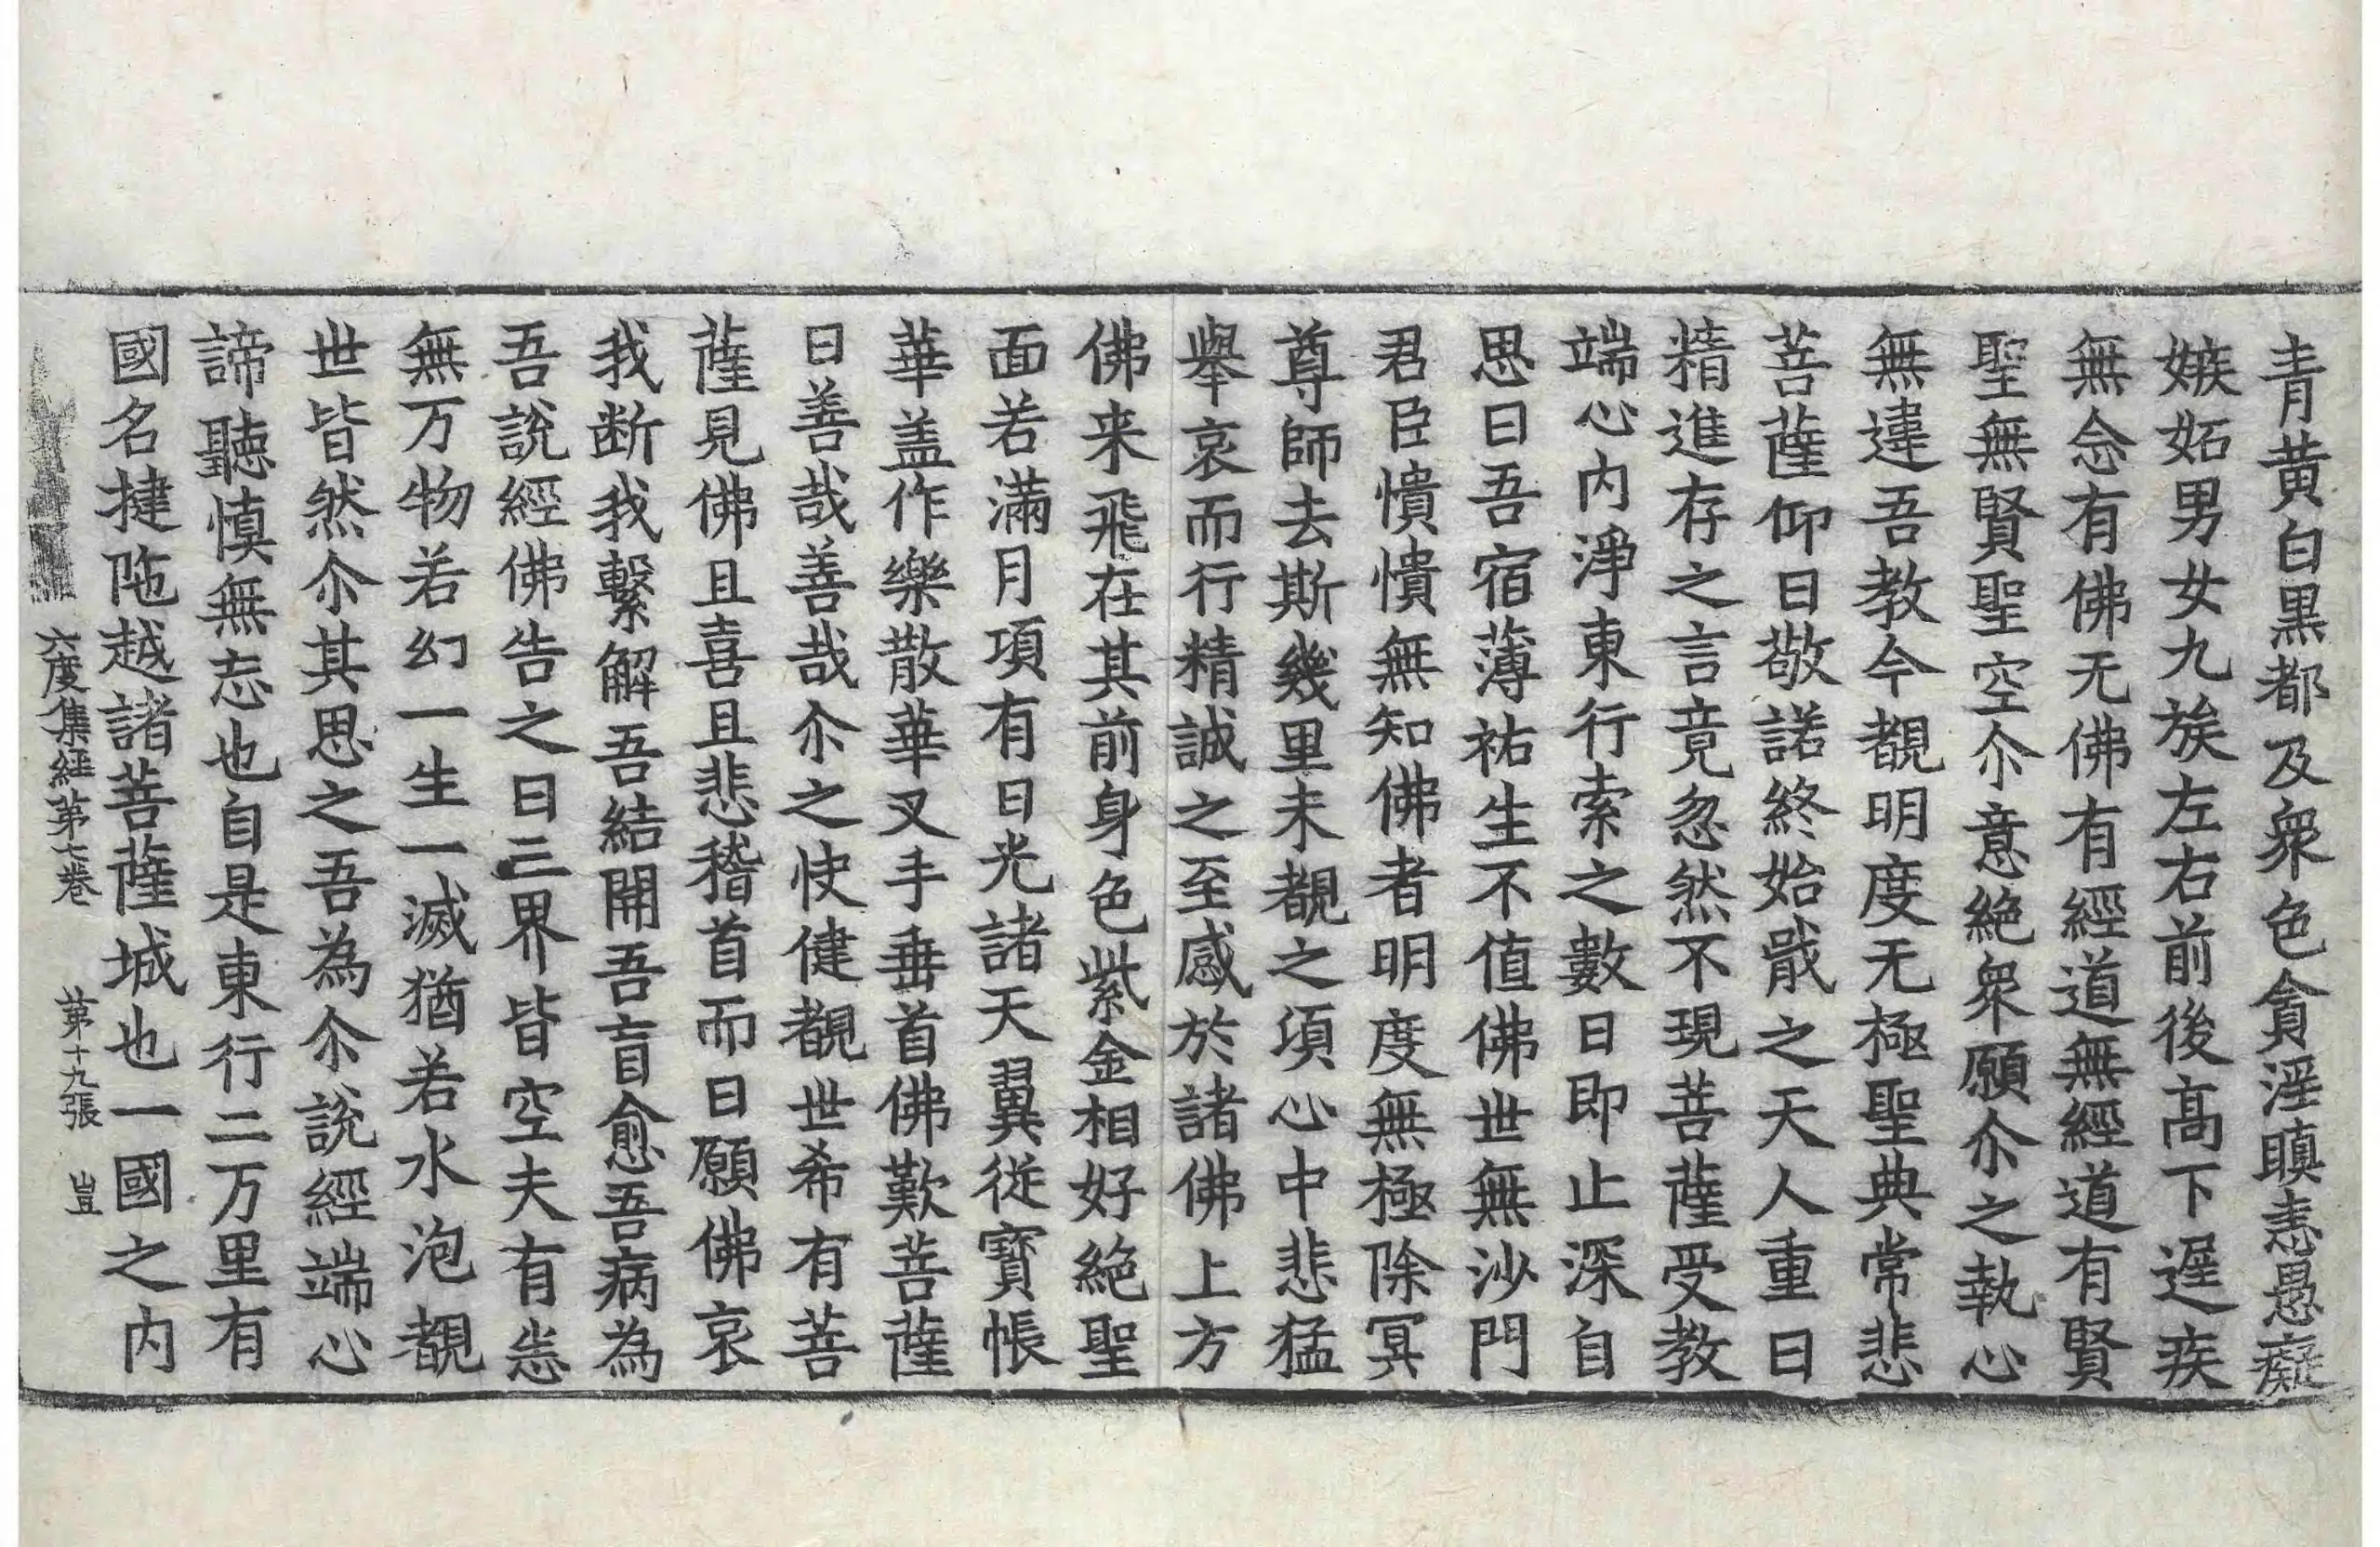 青黃白黒都及衆色貪淫瞋恚愚癡
嫉妬男女九族左右前後髙下遲疾
無念有佛无佛有經道無經道有賢
聖無賢聖空尒意絶衆願尒之執心
無違吾教今覩明度无極聖典常悲
菩薩仰曰敬諾終始戢之天人重曰
精進存之言竟忽然不現菩薩受教
端心内淨東行索之數日即止深自
思曰吾宿薄祐生不值佛世無沙門
君臣憒憒無知佛者明度無極除冥
尊師去斯幾里未覩之項心中悲猛
舉哀而行精誠之至感於諸佛上方
佛来飛在其前身色紫金相好絶聖
面若滿月項有日光諸天翼從寶帳
華盖作樂散華叉手垂首佛歎菩薩
曰善哉善哉尒之快健覩世希有菩
薩見佛且喜且悲稽首而曰願佛哀
我断我繫解吾結開吾盲愈吾病為
吾說經佛告之曰三界皆空夫有悉
無万物若幻一生一滅猶若水泡覩
世皆然尒其思之吾為尒說經端心
諦聽慎無忘也自是東行二万里有
國名揵陁越諸菩薩城也一國之内
六度集經第七卷 第十九張 豈